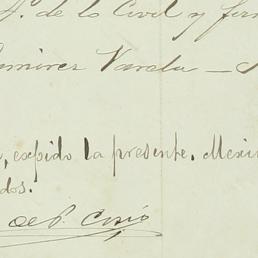 4o. de lo Civil y fir
Ramirez Varela —
expido la presente. Mexi
dos.
de P. Cosio